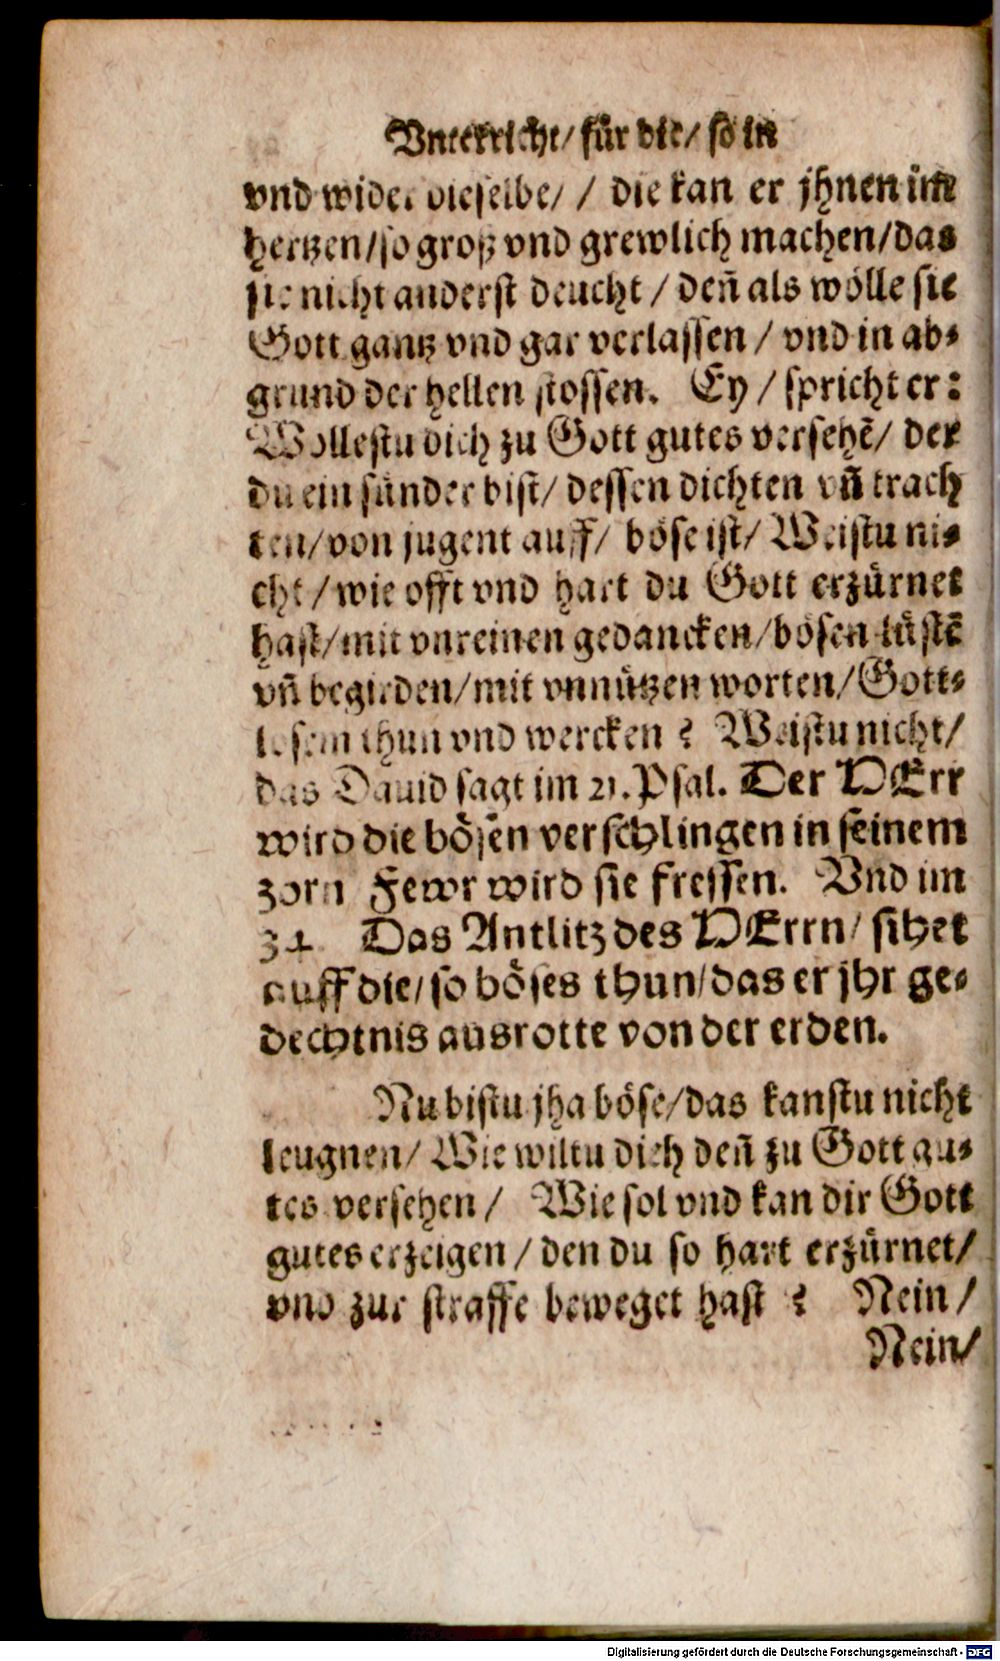 Vnterricht/ für die/ so in
vnd wider dieselbe/ / die kan er jhnen im
hertzen/so groß vnd grewlich machen/das
sie nicht anderst deucht / deñ als wölle sie
Gott gantz vnd gar verlassen / vnd in ab⸗
grund der hellen stossen. Ey / spricht er:
Woltestu dich zu Gott gutes versehē/ der
du ein sünder bist/ dessen dichten vñ trach
ten/von jugent auff/ böse ist/ Weistu ni⸗
cht / wie offt vnd hart du Gott erzürnet
hast/mit vnreinen gedancken/bösen lüstē
vñ begirden/mit vnnützen worten/Gott⸗
losem thun vnd wercken ? Weistu nicht/
das Dauid sagt im 21. Psal. Der HErr
wird die bösen verschlingen in seinem
zorn Fewr wird sie fressen. Vnd im
34. Das Antlitz des HErrn/ sihet
auff die/so böses thun/das er jhr ge⸗
dechtnis ausrotte von der erden.
Nu bistu jha böse/das kanstu nicht
leugnen/ Wie wiltu dich deñ zu Gott gu⸗
tes versehen / Wie sol vnd kan dir Gott
gutes erzeigen / den du so hart erzürnet/
vnd zur straffe beweget hast ? Nein /
Nein/
Digitalisierung gefördert durch die Deutsche Forschungsgemeinschaft - DFG